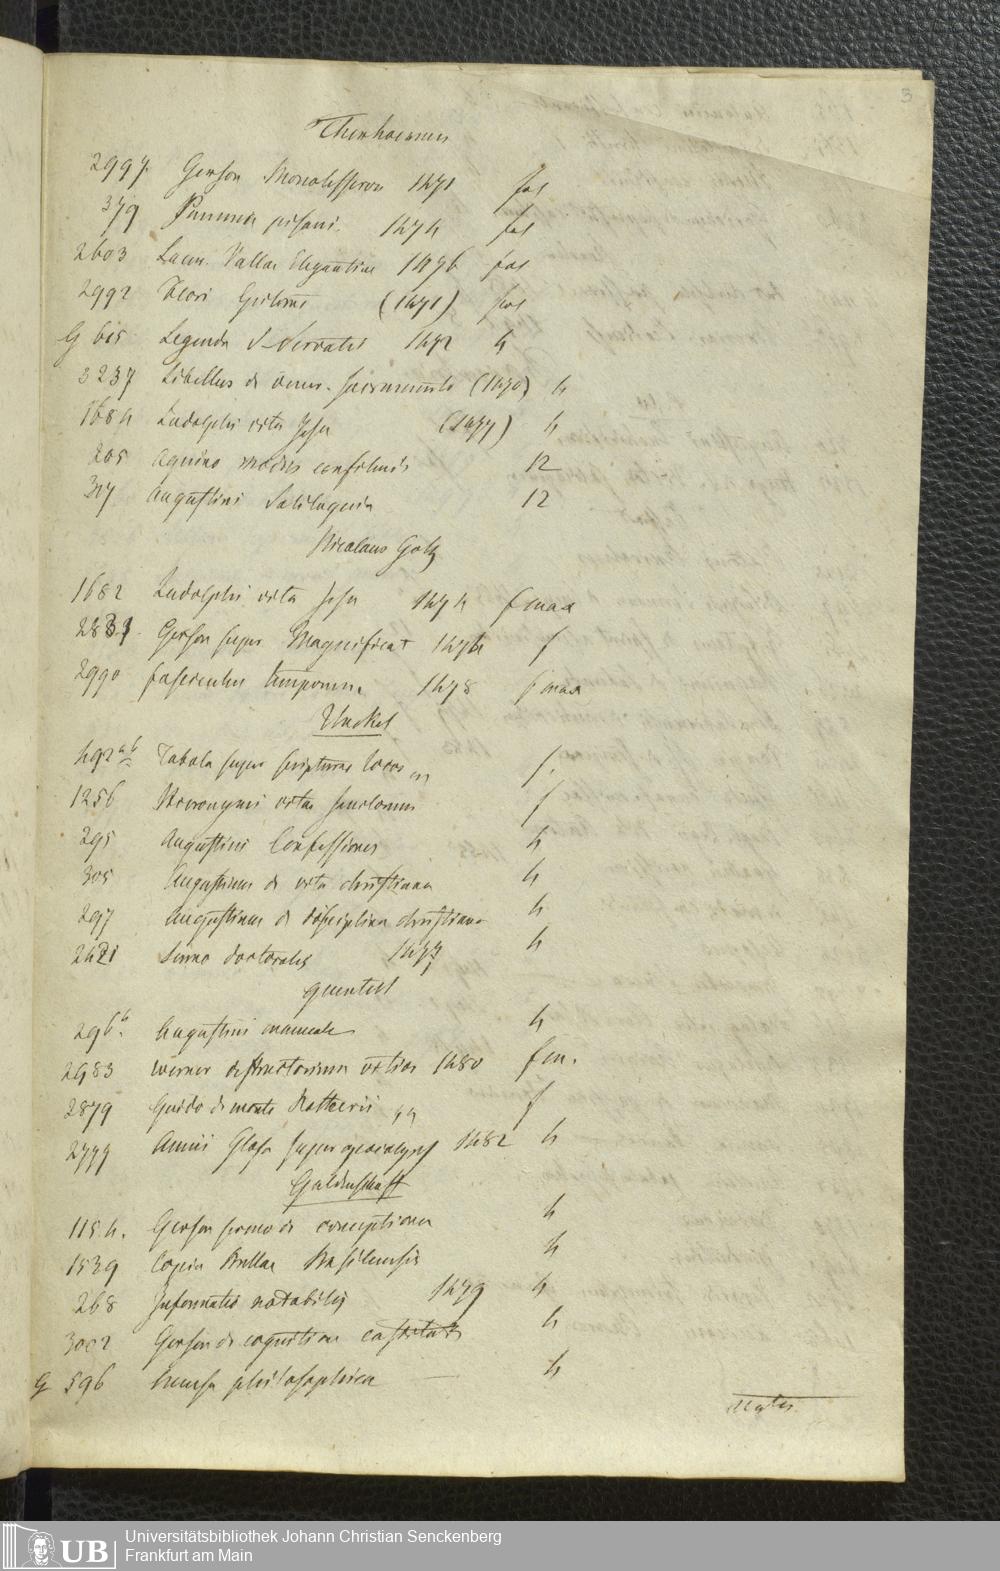 3
Therhoernen
2997. Gerson Monotessaron 1471 fol
379 Summa pisani. 1474 fol
2603 Laur. Vallae Elegantiae 1476 fol
2992 (1471) fol
G 605 Legenda S. Servatii 1472 4
3237 Libellus de vener. sacramento (1470) 4
1684 Ludolphi vita Jesu (1477) 4
205 Aquino modus confitendi 12
317 Augustini Soliloquia 12
Nicolaus Gotz
1682 Ludolphi vita Jesu 1474 f max
Gerson super Magnificat 1474 f
2990 fasciculus temporum 1478 f max
Unckel
492 ab Tabula super scripturas locos f.
1256 Hieronymi vitae sanctorum f
295 Augustini Confessiones 4
305 Augustinus de vita christiana 4
297 Augustinus de disciplina christiana 4
2421 Sermo doctoralis 1477 4
Quentell
296b. Augustini manuale 4
2983 Werner 1480 f m.
2879 Guido de monte Rotherii f
2779 Annii Glosa super apocalyps 1482 4
Guldenschaff
1154. Gerson sermo de conceptione 4
1539 Copia Bullae Basiliensis 4
268 Informatio notabilis 1479 4
3002 Gerson de cognitione castitatis 4
G 596 Summa philosophica — 4
UB Universitätsbibliothek Johann Christian Senckenberg
Frankfurt am Main